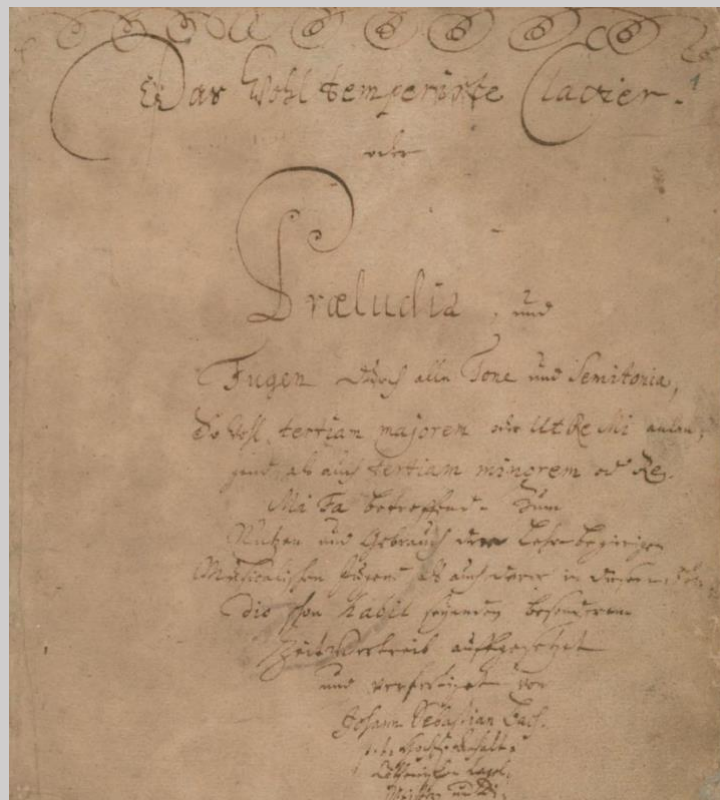 Das Wohltemperirte Clavier.
1
oder
Præludia, und
Fugen durch alle Tone und Semitonia,
So wohl tertiam majorem oder Ut Re Mi anlan,
gend, als auch tertiam minorem oder Re
Mi Fa betreffend. Zum
Nutzen und Gebrauch der Lehr-begierigen
Musicalischen Jugend als auch derer in diesem stu
dio schon habil seyenden besonderem
Zeit Vertreib auffgesetzet
und verfertiget von
Johann Sebastian Bach.
p. t. Hochf. Anhalt.
Cöthenischen Capel-
Meister und Di-